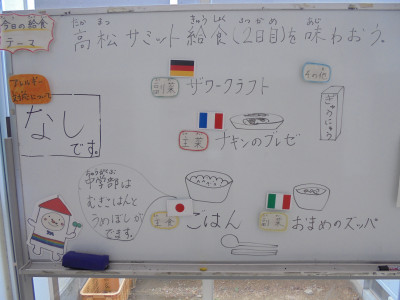 今日の給食
テーマ
たか まつ きゅうしょく ふつかめ あじ
高松サミット給食(2日目)を味わおう。
アレルギー
対応について
なし
です。
副菜 ザワークラフト
その他
ぎゅうにゅう
主菜 チキンのフレゼ
ちゅうがくぶ
中学部は
むぎごはんと
うめぼしが
でます。
主食 ごはん
副菜 おまめのズッパ